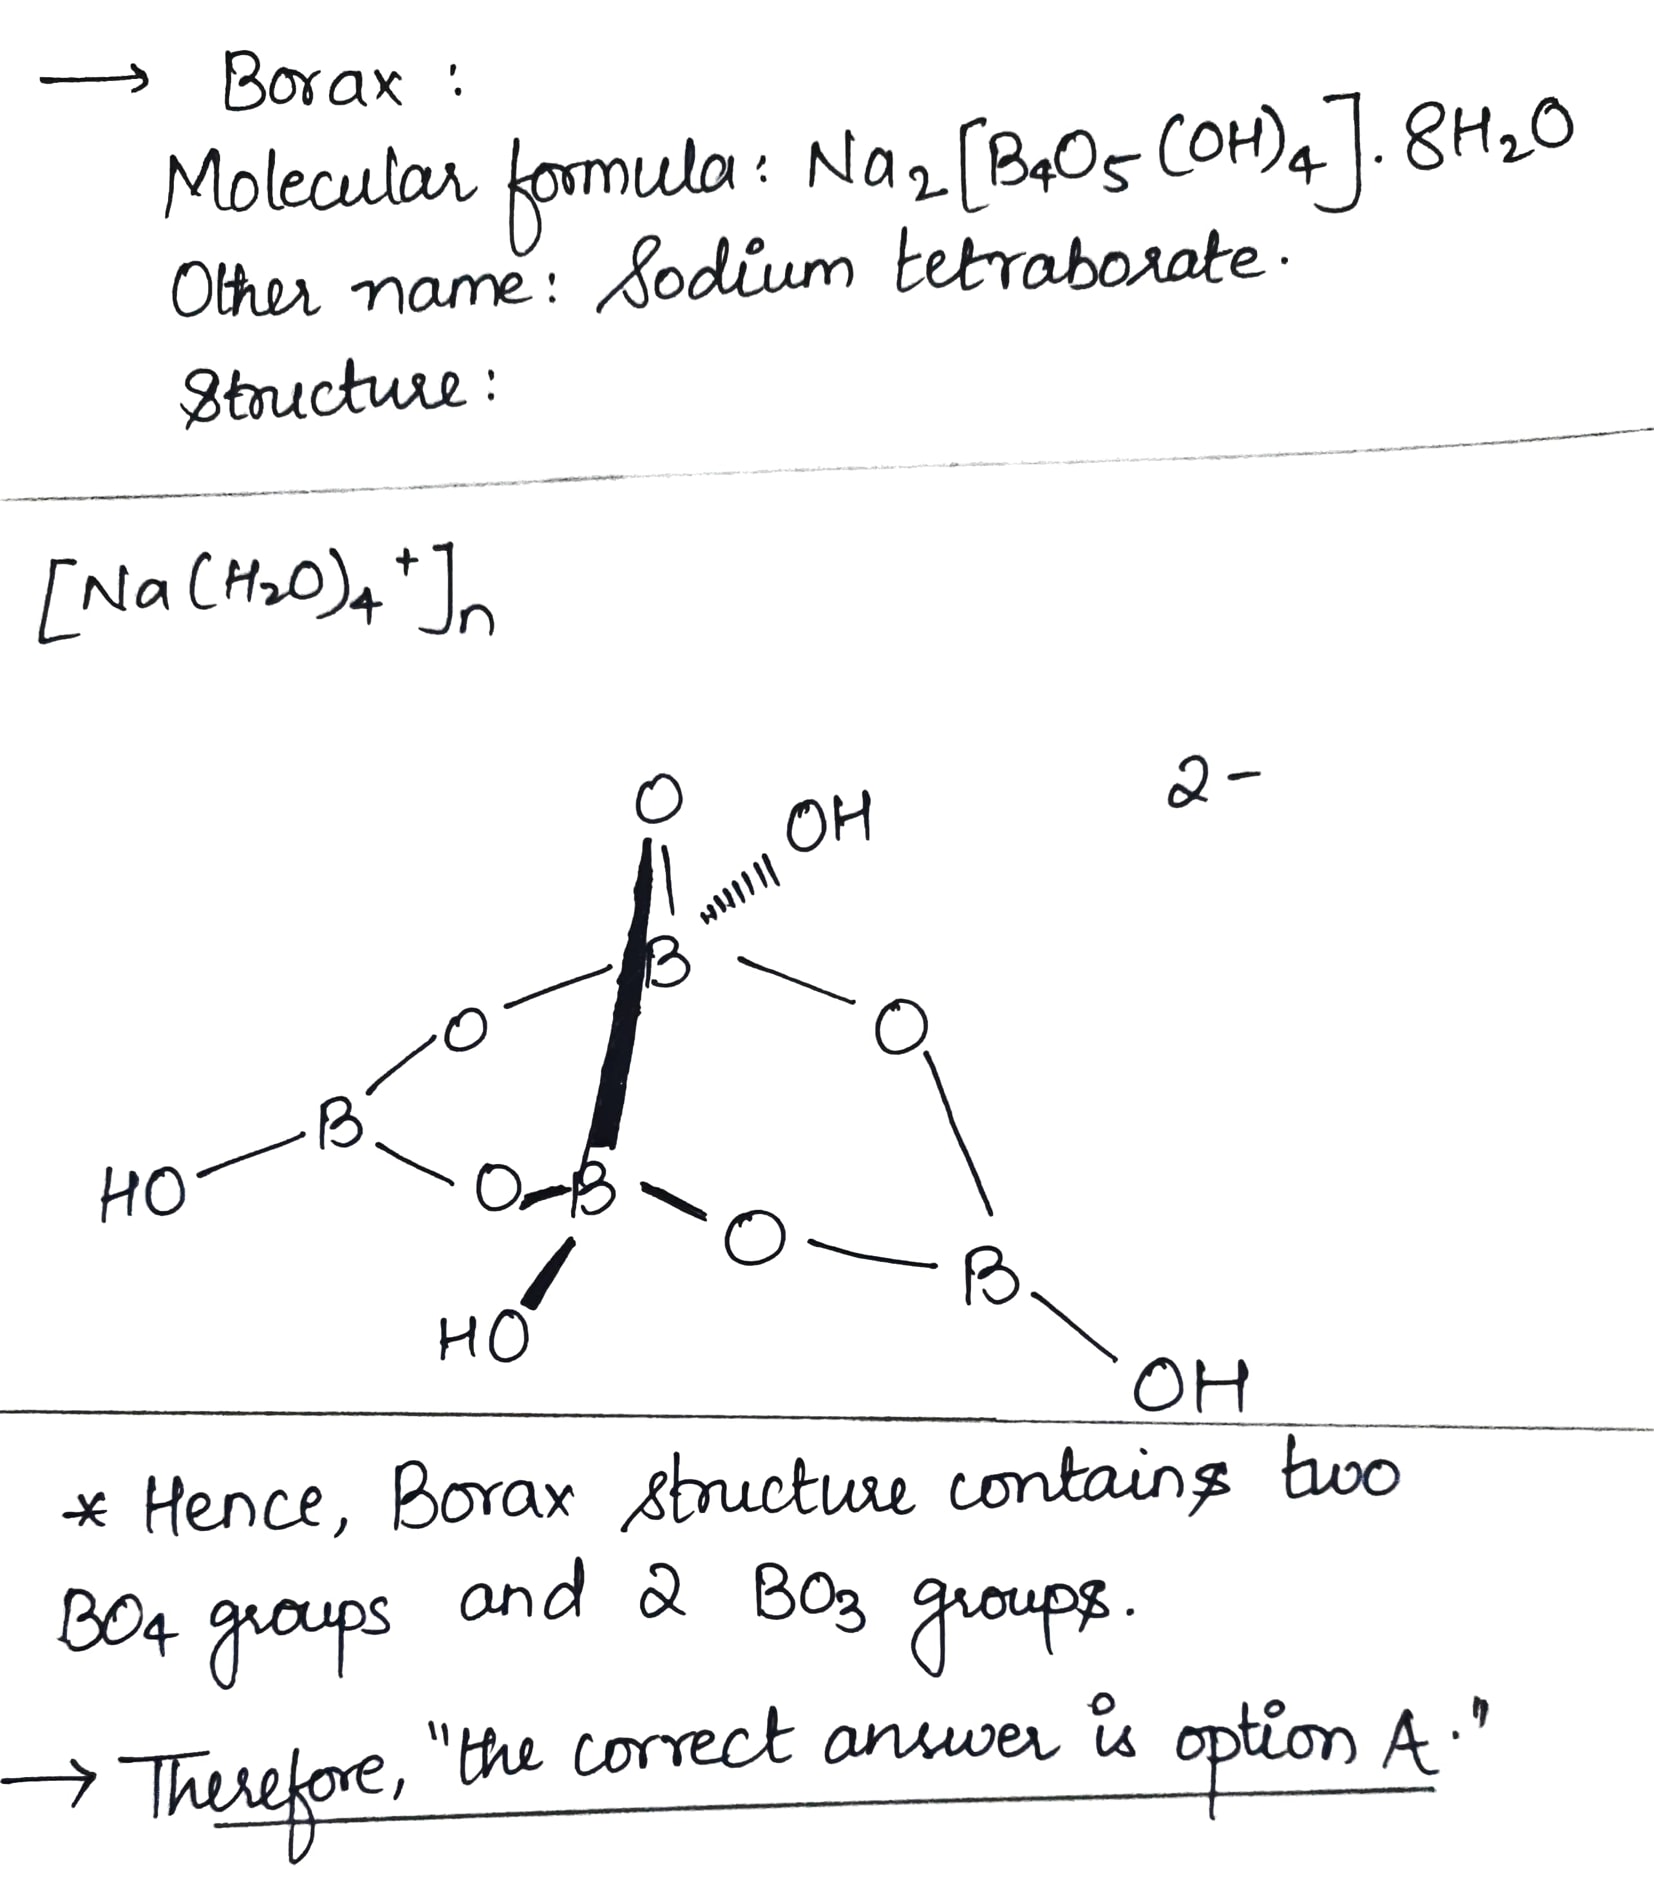 → Borax :
Molecular formula: Na₂[B₄O₅(OH)₄]. 8H₂O
Other name: Sodium tetraborate.
Structure:
[Na(H₂O)₄⁺]ₙ
2-
O
OH
B
O
O
B
HO
O
B
O
B
HO
OH
* Hence, Borax structure contains two
BO₄ groups and 2 BO₃ groups.
→ Therefore, "the correct answer is option A."